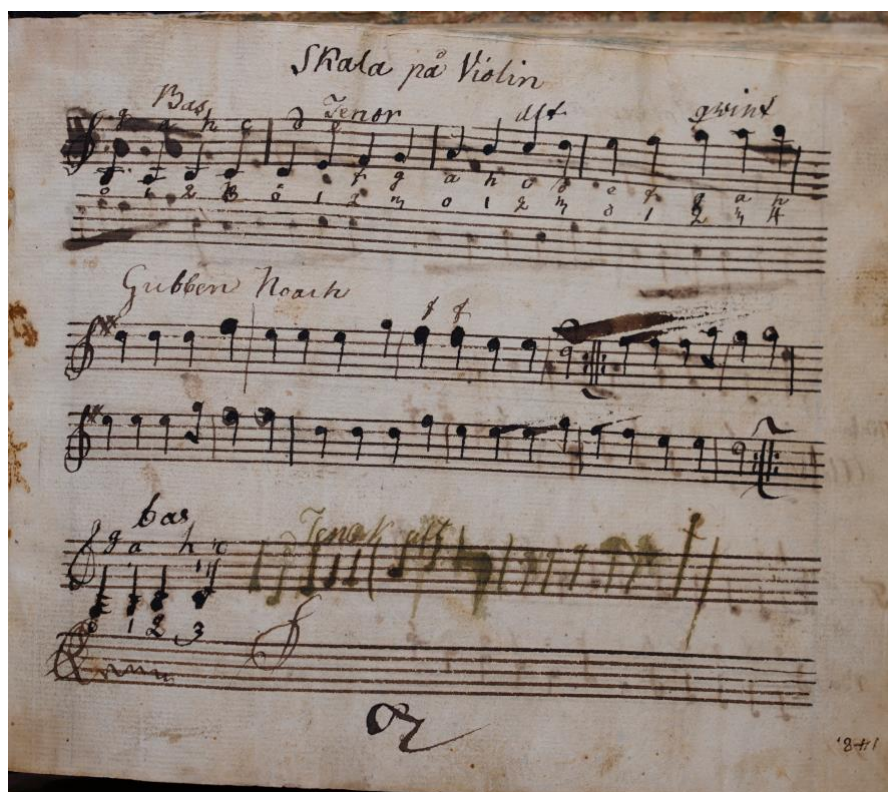 Skala på Violin
Bas Tenor alt qwint
g a h c d e
f g a h c d e f g a h
0 1 2 3 0 1 2 3 0 1 2 3 0 1 2 3 4
Gubben Noach
f f
bas Tenor alt
g a h c
0 1 2 3